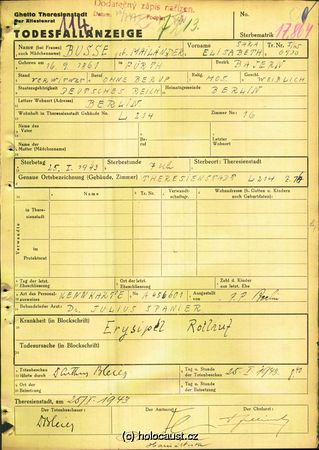 Ghetto Theresienstadt
Der Ältestenrat
Dodatečný zápis nařízen.
Datum
TODESFALLANZEIGE
Sterbematrik
Name (bei Frauen auch Mädchenname) BUSSE g. MAILÄNDER Vorname SARA ELISABETH Tr. Nr.
Geboren am 16.9.1861 in FÜRTH Bezirk BAYERN
Stand VERWITWET Beruf OHNE BERUF Relig. MOS. Geschl. WEIBLICH
Staatszugehörigkeit DEUTSCHES REICH Heimatsgemeinde BERLIN
Letzter Wohnort (Adresse) BERLIN
Wohnhaft in Theresienstadt Gebäude No. L 214 Zimmer No. 16
Name des Vaters Beruf Letzter Wohnort
Name der Mutter (Mädchenname)
Sterbetag 25. I. 1943 Sterbestunde 7 Uhr Sterbeort: Theresienstadt
Genaue Ortsbezeichnung (Gebäude, Zimmer) THERESIENSTADT L 214
Verwandte
in Theresienstadt
im Protektorat
Name Tr. Nr. Verwandtschaftsgr. Wohnadresse (b. Gatten u. Kindern auch Geburtsdaten)
Tag der letzten Eheschliessung Ort der letzten Eheschliessung Zahl d. Kinder aus letzter Ehe
Art des Personalausweises KENNKARTE No. A 456601 Ausgestellt von P.P. Berlin
Behandelnder Arzt Dr. JULIUS SPANIER
Krankheit (in Blockschrift) Erysipel Rotlauf
Todesursache (in Blockschrift)
Totenbeschau führte durch Tag u. Stunde der Totenbeschau 25. I. 1943
Ort der Beisetzung Tag u. Stunde der Beisetzung
Theresienstadt, am 25/I. 1943
Der Totenbeschauer: Der Amtsarzt: Der Chefarzt:
(c) holocaust.cz